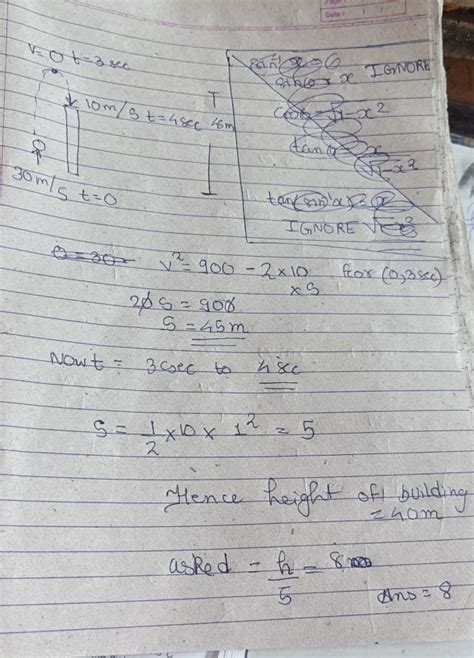 Date :
v=0 t=3sec
10m/s t=4sec 45m
30m/s t=0
IGNORE
sinα = x
cosα = √1-x²
tanα = x
√1-x²
tan(sin⁻¹x)
IGNORE
0=30
v² = 900 - 2×10 for (0,3sec)
×S
20 S = 900
S = 45m
Now t = 3sec to 4sec
S = 1/2 ×10× 1² = 5
Hence height of building
= 40m
asked = h/5 = 8
Ans = 8